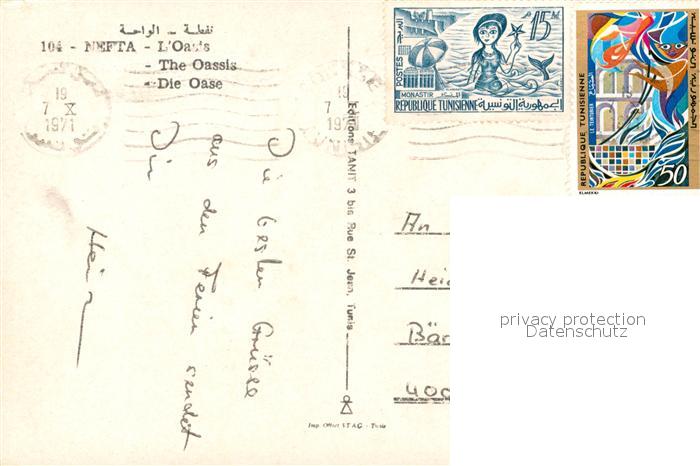 نفطة - الواحة
104 - NEFTA - L'Oasis
- The Oassis
- Die Oase
19
7 X
1971
19
7
15 M
POSTES
MONASTIR
REPUBLIQUE TUNISIENNE الجمهورية التونسية
REPUBLIQUE TUNISIENNE
LE TEINTURIER
50
ELMEKKI
Die besten Grüsse
aus den Ferien sendet
Dir
Heinz
Editions TANIT 3 bis Rue St. Jean, Tunis
An
Heid
Bär
400
Imp. Offset STAG - Tunis
privacy protection
Datenschutz